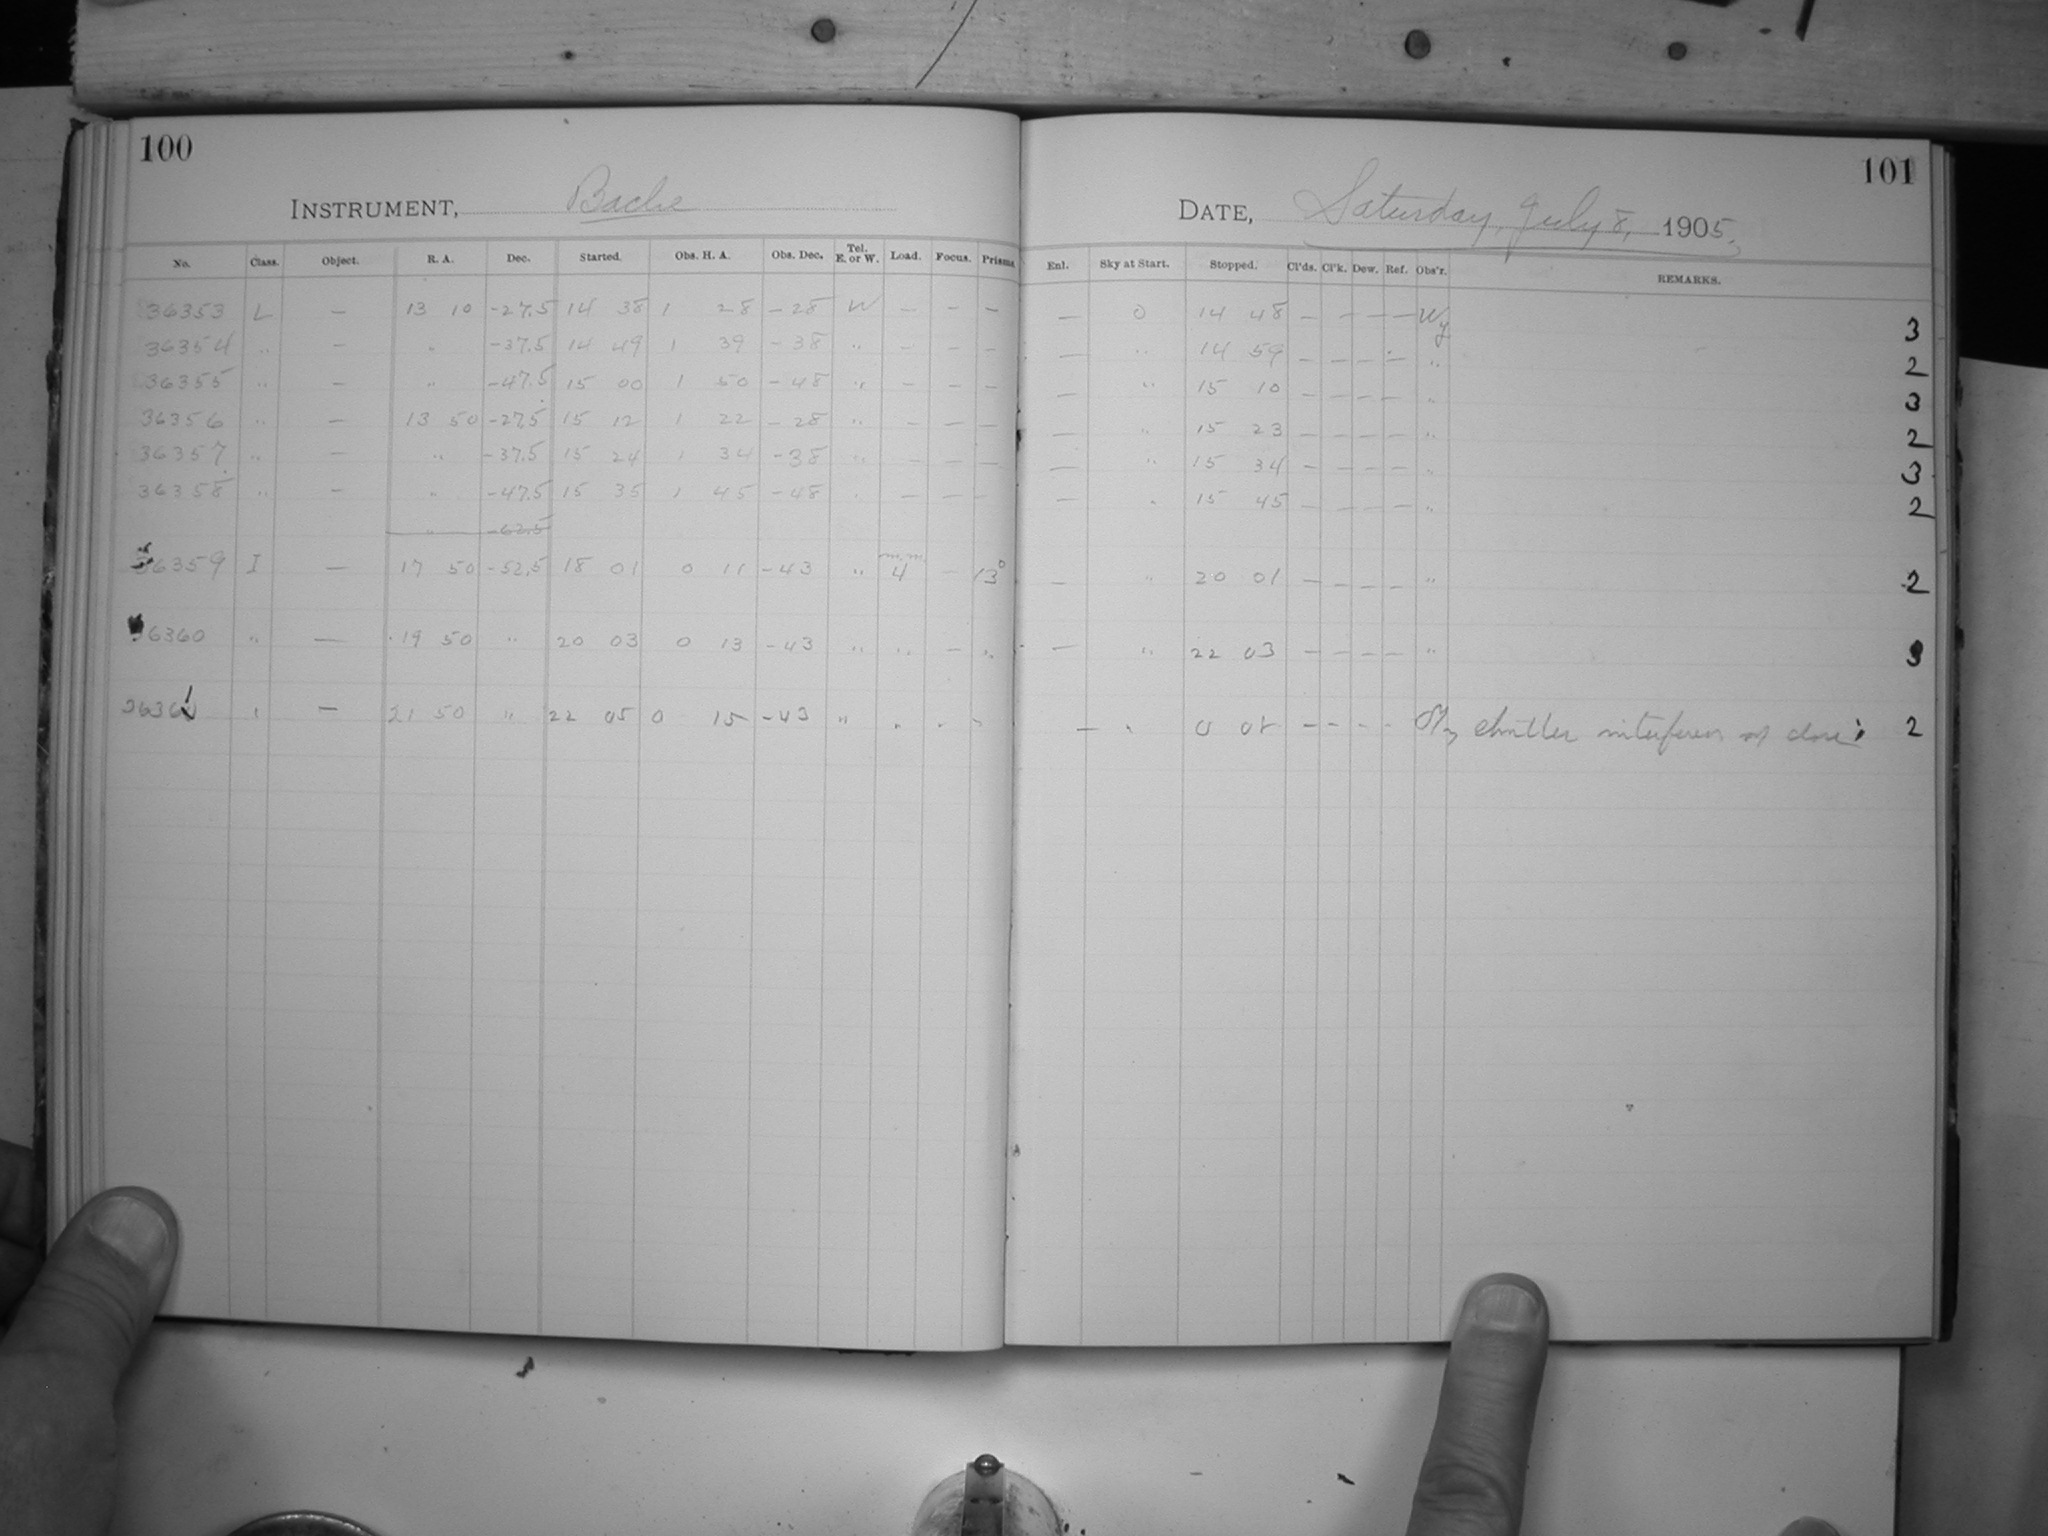 100
INSTRUMENT, Bache
No. Class. Object. R. A. Dec. Started. Obs. H. A. Obs. Dec. Tel. E. or W. Load. Focus. Prisms
36353 L — 13 10 -27.5 14 38 1 28 -28 W — — —
36354 " — " -37.5 14 49 1 39 -38 " — — —
36355 " — " -47.5 15 00 1 50 -48 " — — —
36356 " — 13 50 -27.5 15 12 1 22 -28 " — — —
36357 " — " -37.5 15 24 1 34 -38 " — — —
36358 " — " -47.5 15 35 1 45 -48 " — — —
" -62.5
36359 I — 17 50 -52.5 18 01 0 11 -43 " 4 m.m. — 13°
36360 " — 19 50 " 20 03 0 13 -43 " " — "
36361 " — 21 50 " 22 05 0 15 -43 " " " "
101
DATE, Saturday, July 8, 1905.
Enl. Sky at Start. Stopped. Cl'ds. Cl'k. Dew. Ref. Obs'r. REMARKS.
— 0 14 48 — — — — Wy 3
— " 14 59 — — — — " 2
— " 15 10 — — — — " 3
— " 15 23 — — — — " 2
— " 15 34 — — — — " 3
— " 15 45 — — — — " 2
— " 20 01 — — — — " 2
— " 22 03 — — — — " 3
— " 0 08 — — — — shutter 2